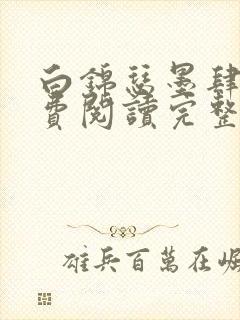 白錦瑟墨肆
費閱讀完整
雄兵百萬在崛